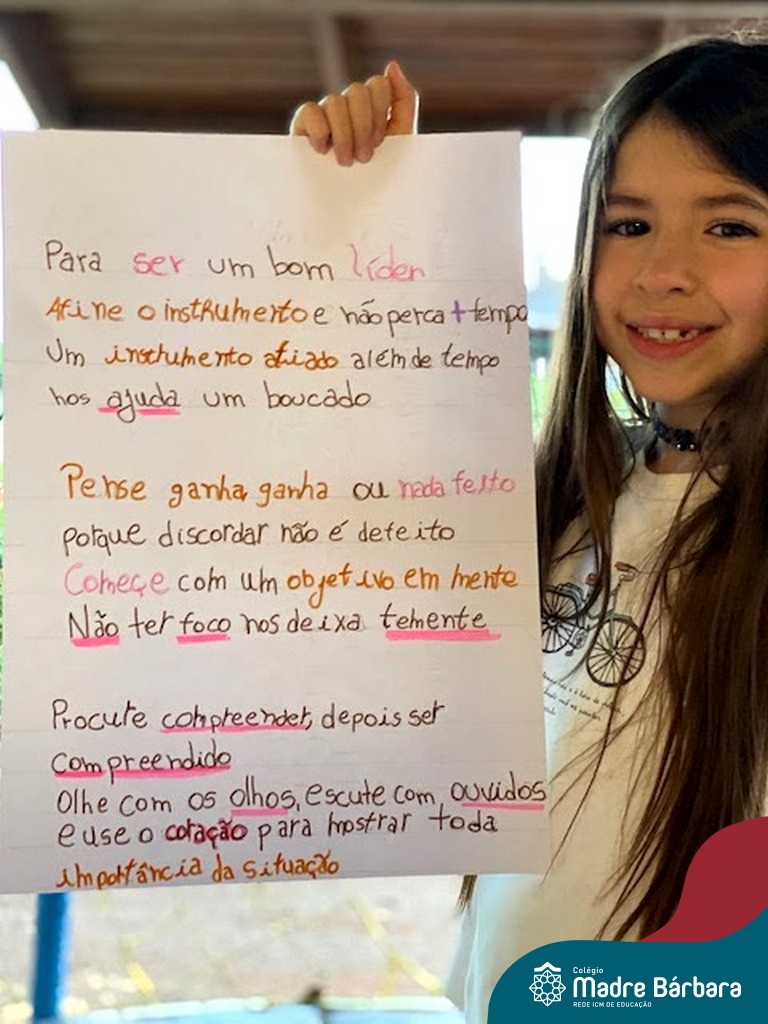 Para ser um bom líder
Afine o instrumento e não perca + tempo
Um instrumento afiado além de tempo
nos ajuda um boucado
Pense ganha, ganha ou nada feito
porque discordar não é defeito
Começe com um objetivo em mente
Não ter foco nos deixa temente
Procure compreender, depois ser
compreendido
Olhe com os olhos, escute com ouvidos
e use o coração para mostrar toda
importância da situação
Colégio
Madre Bárbara
REDE ICM DE EDUCAÇÃO